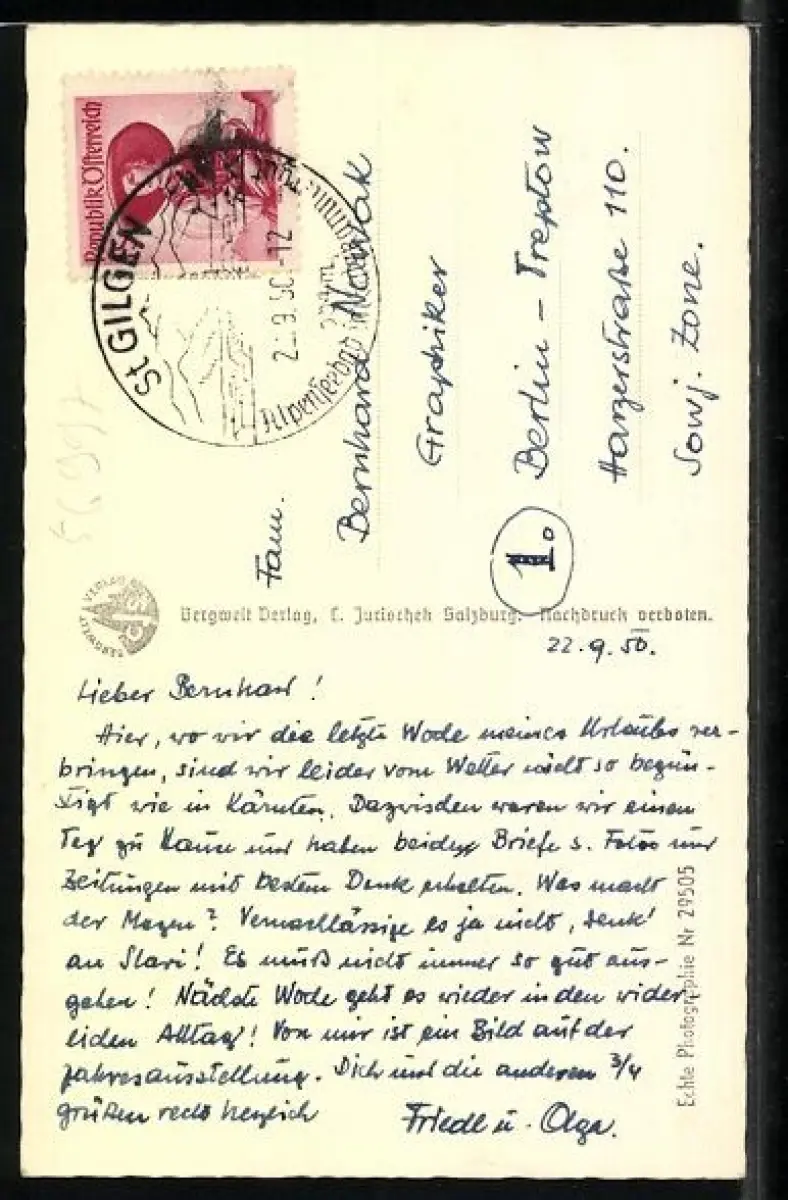 Republik Österreich
St. GILGEN
2 .9.50-12
Alpenseebad
Fam.
Bernhard Nowak
Graphiker
1.
Berlin - Treptow
Harzerstraße 110.
Sowj. Zone.
56997
Bergwelt Verlag, C. Jurischek Salzburg. - Nachdruck verboten.
22.9.50.
Lieber Bernhard!
Hier, wo wir die letzte Woche meines Urlaubs ver-
bringen, sind wir leider vom Wetter nicht so begün-
stigt wie in Kärnten. Dazwischen waren wir einen
Tag zu Hause und haben beide Briefe s. Fotos und
Zeitungen mit bestem Dank erhalten. Was macht
der Magen? Vernachlässige es ja nicht, denk'
an Slavi! Es muß nicht immer so gut aus-
gehen! Nächste Woche geht es wieder in den wider-
lichen Alltag! Von mir ist ein Bild auf der
Jahresausstellung. Dich und die anderen 3/4
grüßen recht herzlich
Friedl u. Olga.
Echte Photographie Nr 29505